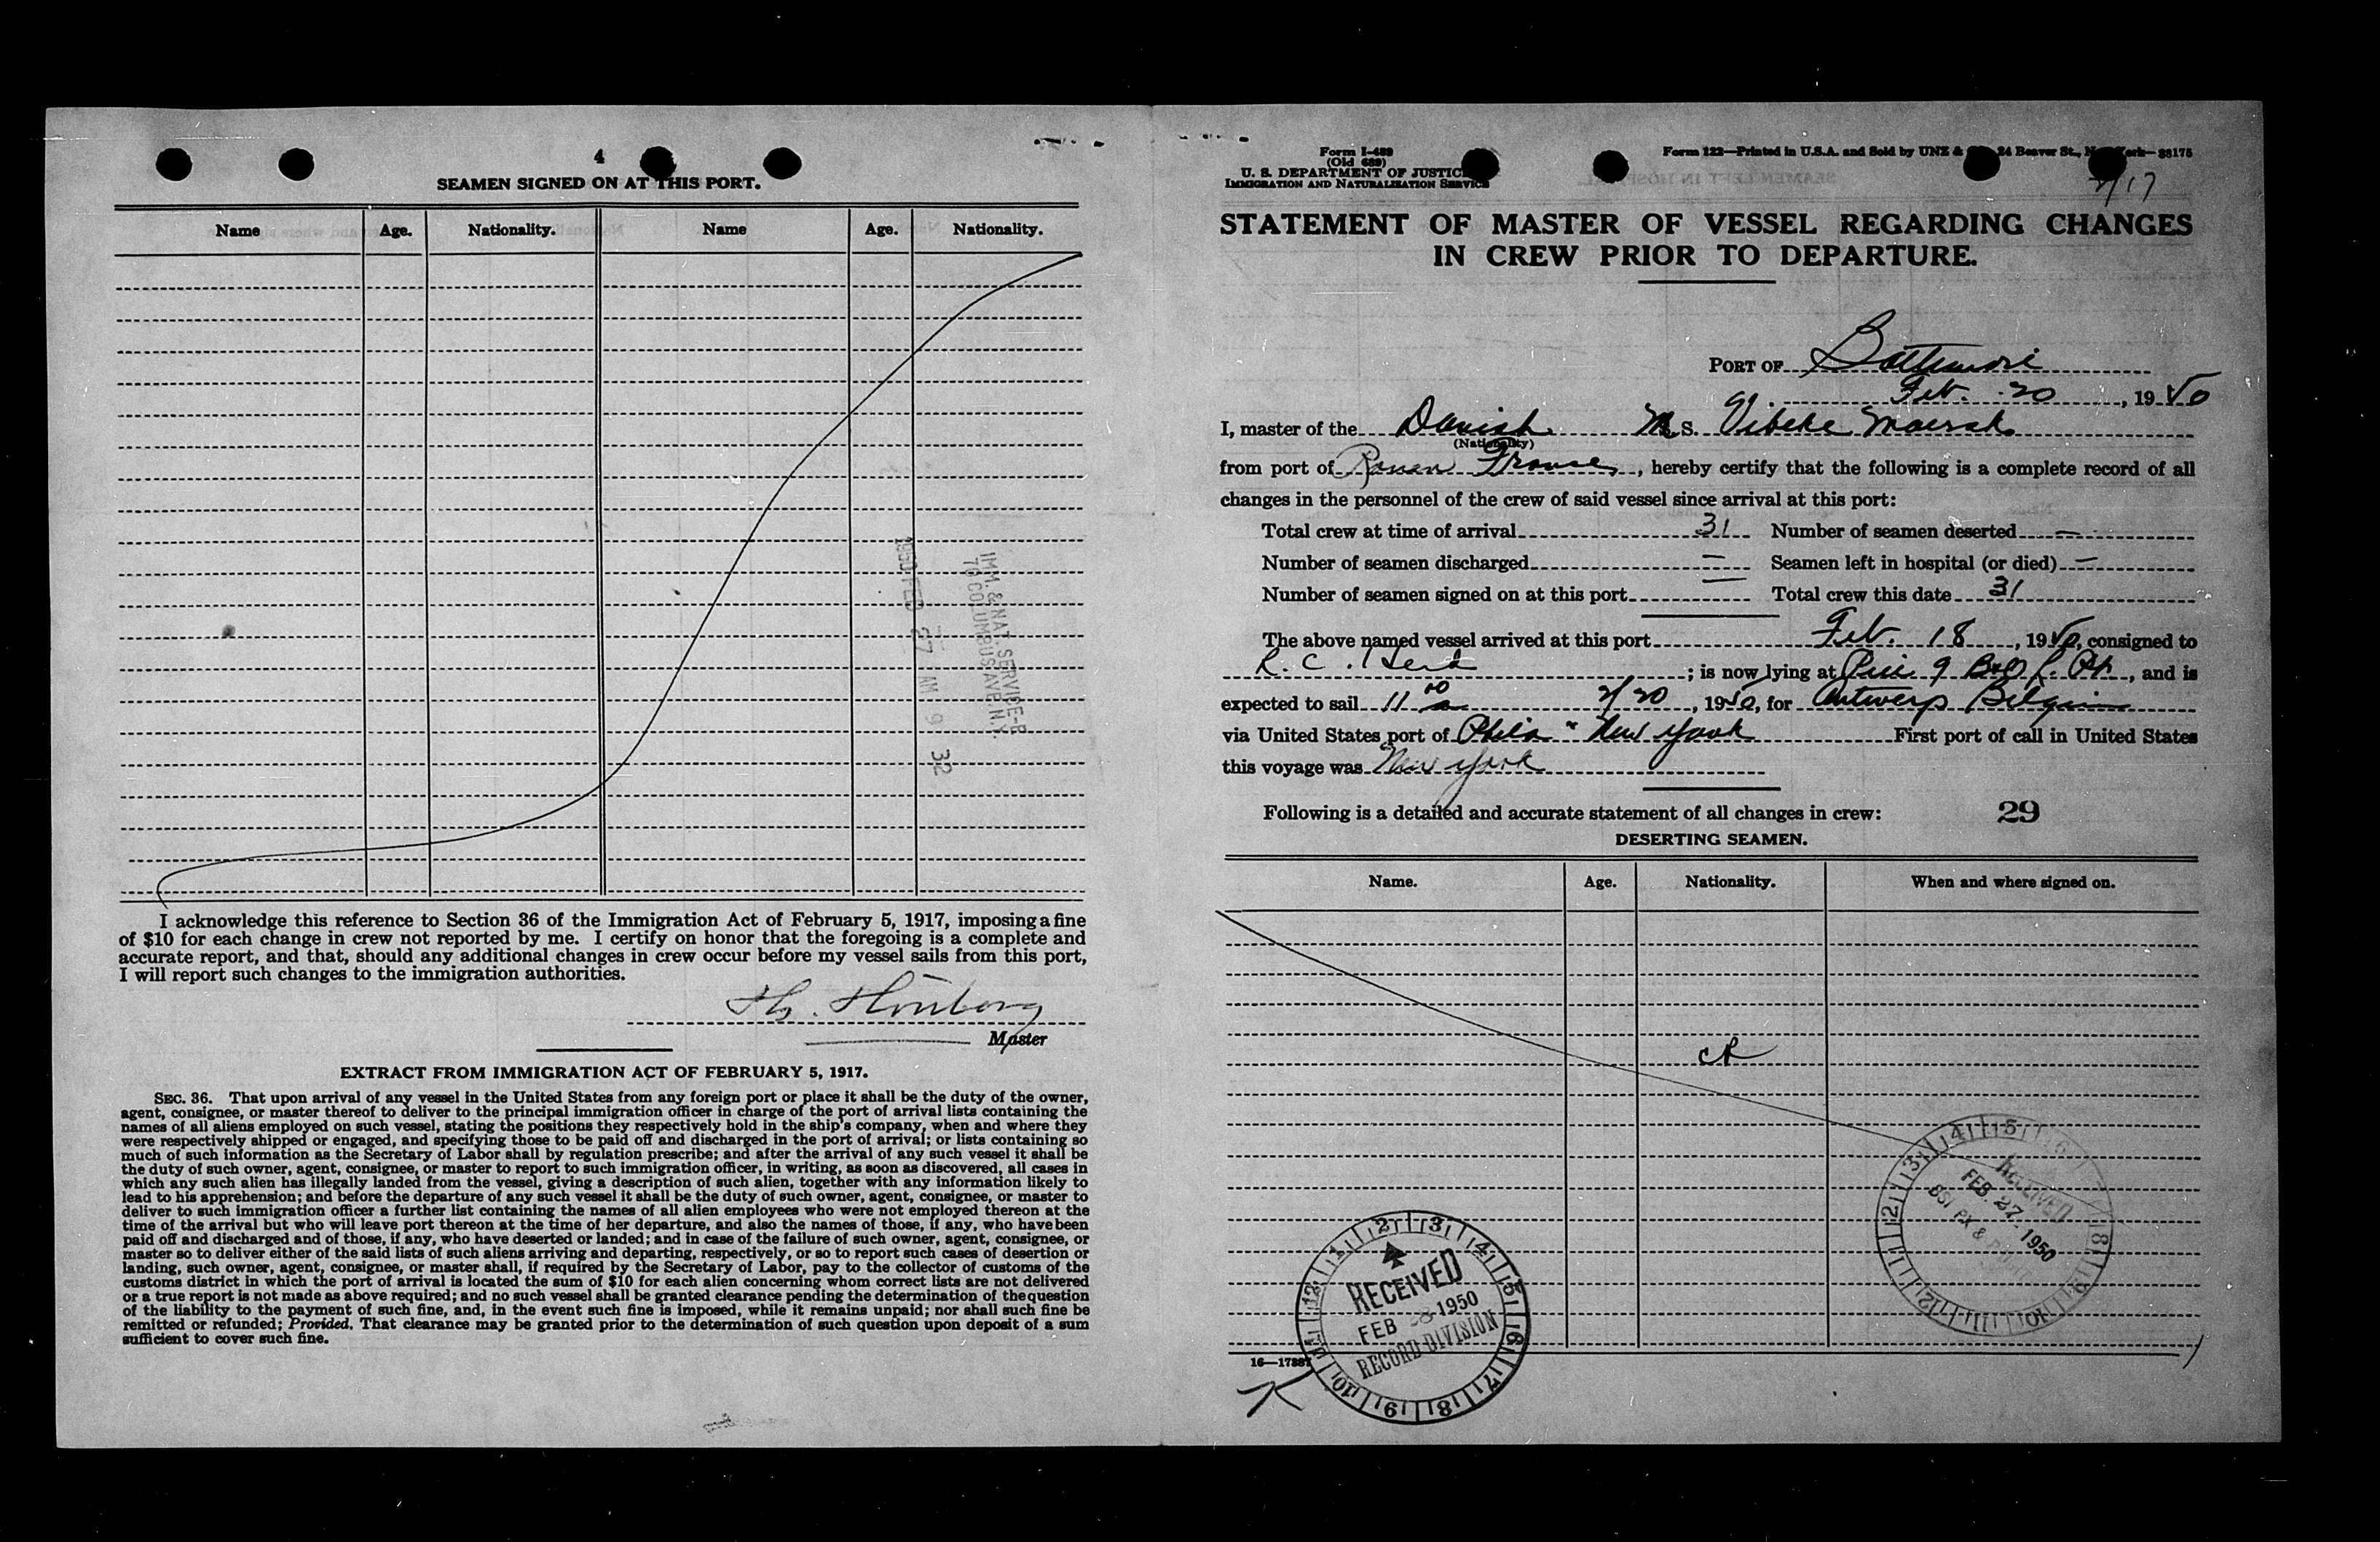 4
SEAMEN SIGNED ON AT THIS PORT.
Name Age. Nationality. Name Age. Nationality.
1950 FEB 27 AM 9 32
IMM. & NAT. SERVICE-E
70 COLUMBUS AVE. N.Y.
I acknowledge this reference to Section 36 of the Immigration Act of February 5, 1917, imposing a fine
of $10 for each change in crew not reported by me. I certify on honor that the foregoing is a complete and
accurate report, and that, should any additional changes in crew occur before my vessel sails from this port,
I will report such changes to the immigration authorities.
Master
EXTRACT FROM IMMIGRATION ACT OF FEBRUARY 5, 1917.
SEC. 36. That upon arrival of any vessel in the United States from any foreign port or place it shall be the duty of the owner,
agent, consignee, or master thereof to deliver to the principal immigration officer in charge of the port of arrival lists containing the
names of all aliens employed on such vessel, stating the positions they respectively hold in the ship's company, when and where they
were respectively shipped or engaged, and specifying those to be paid off and discharged in the port of arrival; or lists containing so
much of such information as the Secretary of Labor shall by regulation prescribe; and after the arrival of any such vessel it shall be
the duty of such owner, agent, consignee, or master to report to such immigration officer, in writing, as soon as discovered, all cases in
which any such alien has illegally landed from the vessel, giving a description of such alien, together with any information likely to
lead to his apprehension; and before the departure of any such vessel it shall be the duty of such owner, agent, consignee, or master to
deliver to such immigration officer a further list containing the names of all alien employees who were not employed thereon at the
time of the arrival but who will leave port thereon at the time of her departure, and also the names of those, if any, who have been
paid off and discharged and of those, if any, who have deserted or landed; and in case of the failure of such owner, agent, consignee, or
master so to deliver either of the said lists of such aliens arriving and departing, respectively, or so to report such cases of desertion or
landing, such owner, agent, consignee, or master shall, if required by the Secretary of Labor, pay to the collector of customs of the
customs district in which the port of arrival is located the sum of $10 for each alien concerning whom correct lists are not delivered
or a true report is not made as above required; and no such vessel shall be granted clearance pending the determination of the question
of the liability to the payment of such fine, and, in the event such fine is imposed, while it remains unpaid; nor shall such fine be
remitted or refunded; Provided, That clearance may be granted prior to the determination of such question upon deposit of a sum
sufficient to cover such fine.
Form I-489
(Old 689)
U. S. DEPARTMENT OF JUSTICE
IMMIGRATION AND NATURALIZATION SERVICE
Form 122—Printed in U.S.A. and Sold by UNZ & 24 Beaver St., New York—38175
2/17
STATEMENT OF MASTER OF VESSEL REGARDING CHANGES
IN CREW PRIOR TO DEPARTURE.
PORT OF Baltimore
Feb. 20, 1950
I, master of the Danish M. S. Vibeke Maersk
(Nationality)
from port of Rouen France, hereby certify that the following is a complete record of all
changes in the personnel of the crew of said vessel since arrival at this port:
Total crew at time of arrival 31 Number of seamen deserted —
Number of seamen discharged — Seamen left in hospital (or died) —
Number of seamen signed on at this port — Total crew this date 31
The above named vessel arrived at this port Feb. 18, 1950, consigned to
R. C. Herd ; is now lying at Pier 9 B&O L. Pt., and is
expected to sail 11 00 a 2/20, 1950, for Antwerp Belgium
via United States port of Phila & New York First port of call in United States
this voyage was New York
Following is a detailed and accurate statement of all changes in crew: 29
DESERTING SEAMEN.
Name. Age. Nationality. When and where signed on.
RECEIVED
FEB. 27 1950
BSI PX &
RECEIVED
FEB 1950
RECORD DIVISION
16—17887